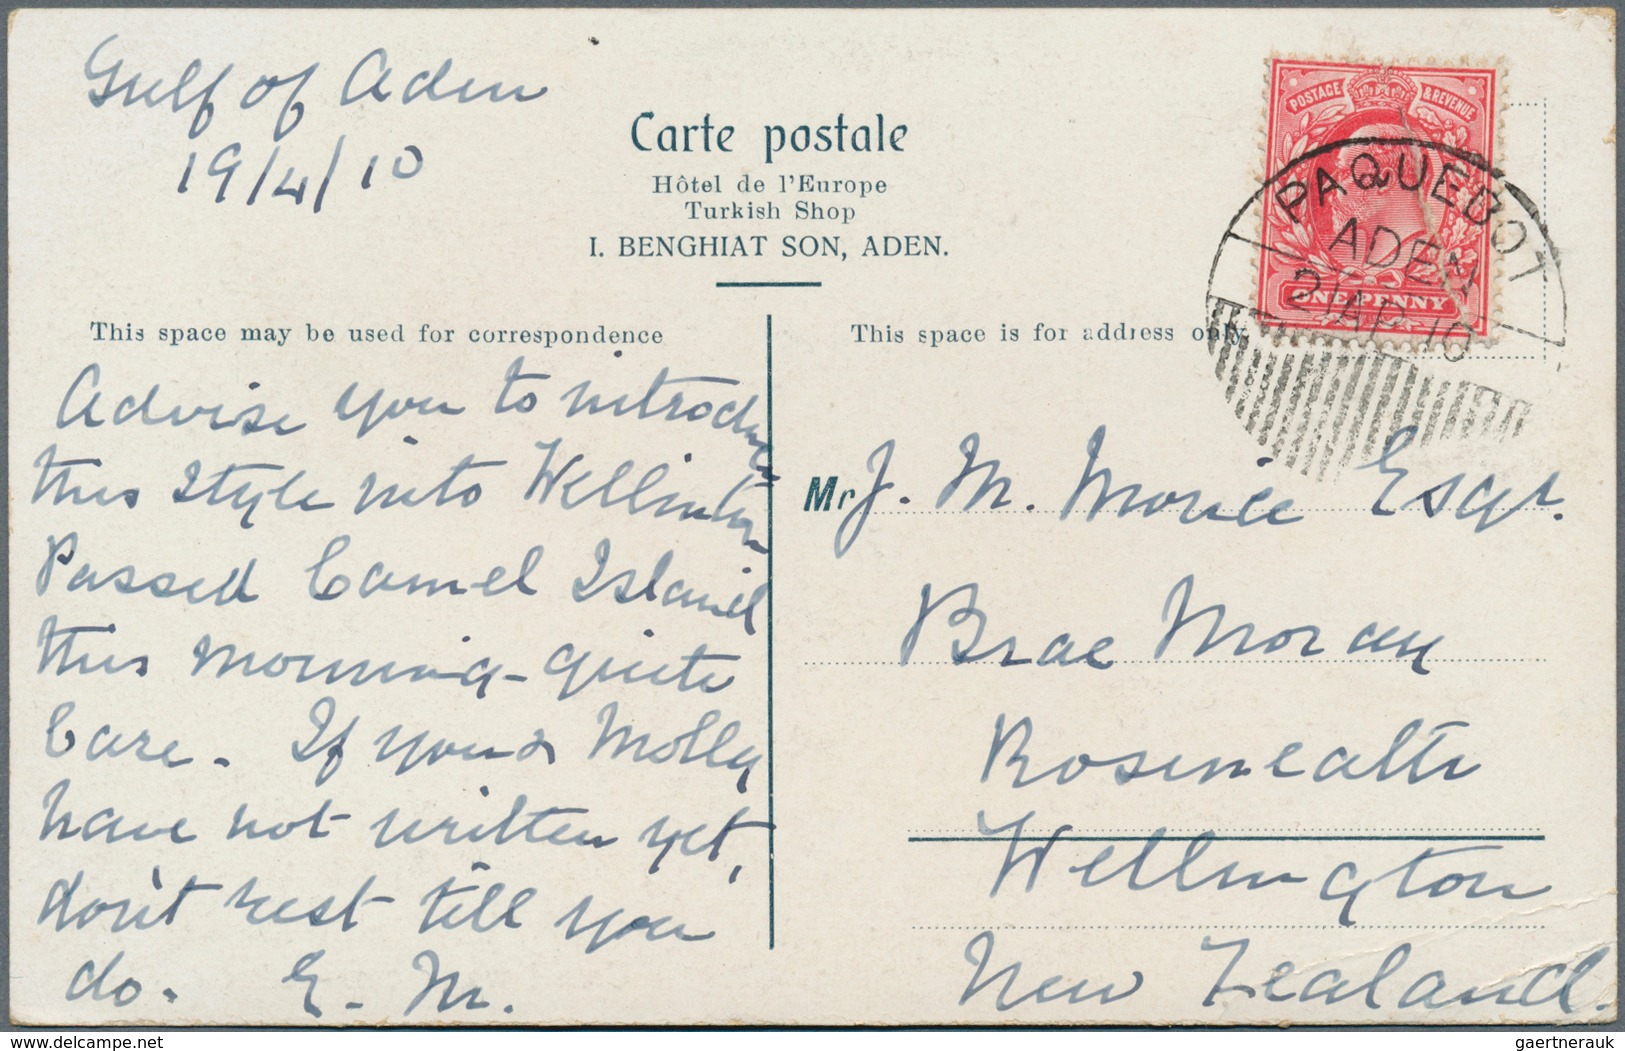 Gulf of Aden
19/4/10
Carte postale
Hôtel de l'Europe
Turkish Shop
I. BENGHIAT SON, ADEN.
POSTAGE & REVENUE
ONE PENNY
PAQUEBOT
ADEN
21 AP 10
This space may be used for correspondence
Advise you to introduce
this style into Wellington
Passed Camel Island
this morning - quite
bare. If you & Molly
have not written yet,
don't rest till you
do. E. M.
This space is for address only
Mr J. M. Morice Esqr.
Brae Moray
Roseneath
Wellington
New Zealand.
gaertnerauk